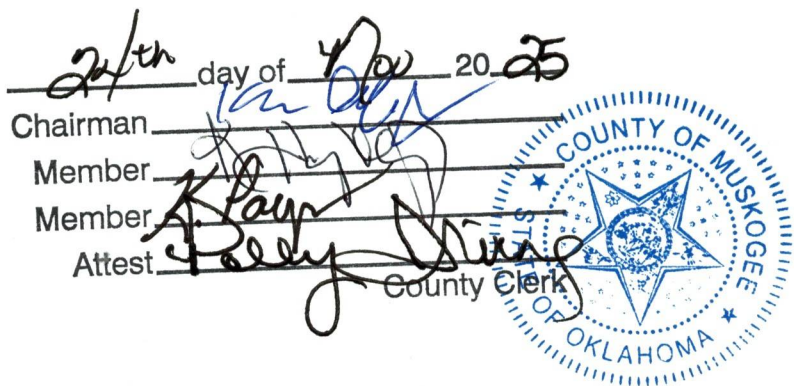 24th day of Nov 20 25
Chairman
Member
Member K. Payn
Attest Polly Irving
County Clerk
COUNTY OF MUSKOGEE
STATE OF OKLAHOMA